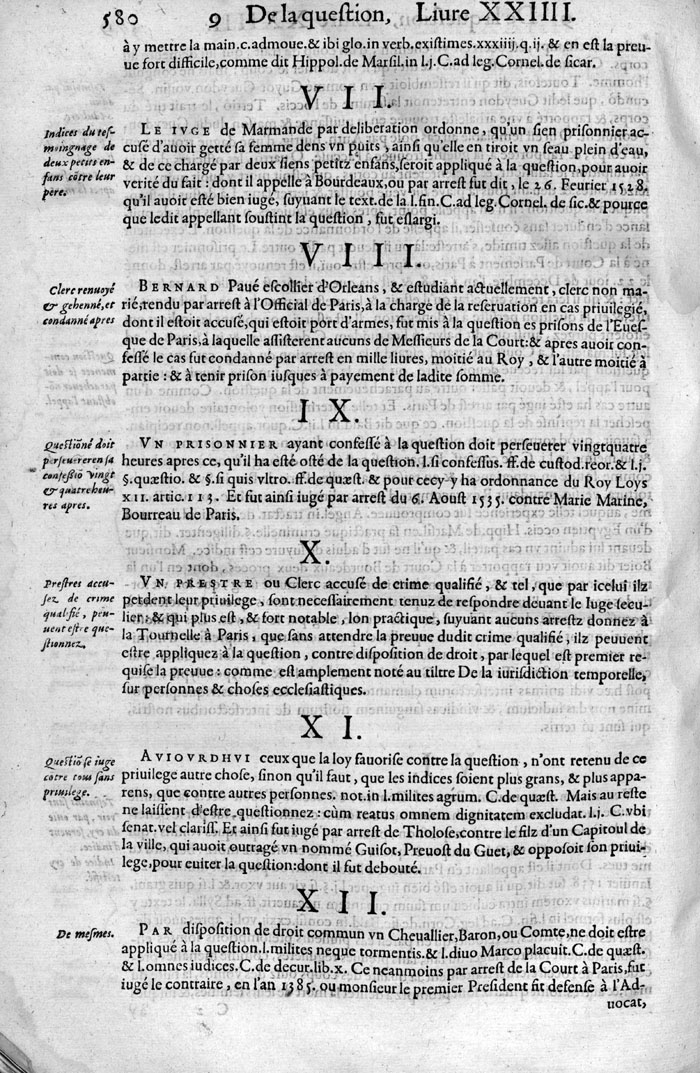 580 9 De la question, Liure XXIIII.
à y mettre la main.c.admoue.& ibi glo.in verb.existimes.xxxiiij.q.ij. & en est la preu-
ue fort difficile,comme dit Hippol.de Marsil.in l.j.C.ad leg.Cornel.de sicar.
VII.
Indices du tes-
moingnage de
deux petits en-
fans cōtre leur
pere.
LE IVGE de Marmande par deliberation ordonne, qu'vn sien prisonnier ac-
cusé d'auoir getté sa femme dens vn puits, ainsi qu'elle en tiroit vn seau plein d'eau,
& de ce chargé par deux siens petitz enfans,seroit appliqué à la question,pour auoir
verité du fait : dont il appelle à Bourdeaux,ou par arrest fut dit, le 26. Feurier 1528.
qu'il auoit esté bien iugé, suyuant le text.de la l.fin.C.ad leg.Cornel. de sic.& pource
que ledit appellant soustint la question, fut eslargi.
VIII.
Clerc renuoyé
& gehenné,et
condanné apres
BERNARD Paué escollier d'Orleans, & estudiant actuellement, clerc non ma-
rié,rendu par arrest à l'Official de Paris,à la charge de la reseruation en cas priuilegié,
dont il estoit accusé,qui estoit port d'armes, fut mis à la question es prisons de l'Eues-
que de Paris,à laquelle assisterent aucuns de Messieurs de la Court:& apres auoir con-
fessé le cas fut condanné par arrest en mille liures, moitié au Roy, & l'autre moitié à
partie : & à tenir prison iusques à payement de ladite somme.
IX.
Questiōné doit
perseuerer en sa
confessiō vingt
& quatre heu-
res apres.
VN PRISONNIER ayant confessé à la question doit perseuerer vingtquatre
heures apres ce, qu'il ha esté osté de la question. l.si confessus. ff.de custod.reor.& l.j.
§.quæstio. & §.si quis vltro. ff.de quæst. & pour cecy y ha ordonnance du Roy Loys
XII. artic.113. Et fut ainsi iugé par arrest du 6. Aoust 1535. contre Marie Marine,
Bourreau de Paris.
X.
Prestres accu-
sez de crime
qualifié, peu-
uent estre que-
stionnez.
VN PRESTRE ou Clerc accusé de crime qualifié, & tel, que par icelui ilz
perdent leur priuilege, sont necessairement tenuz de respondre deuant le Iuge secu-
lier: & qui plus est, & fort notable, lon practique, suyuant aucuns arrestz donnez à
la Tournelle à Paris, que sans attendre la preuue dudit crime qualifié, ilz peuuent
estre appliquez à la question, contre disposition de droit, par lequel est premier re-
quise la preuue : comme est amplement noté au tiltre De la iurisdiction temporelle,
sur personnes & choses ecclesiastiques.
XI.
Questiō se iuge
cōtre tous sans
priuilege.
AVIOVRDHVI ceux que la loy fauorise contre la question, n'ont retenu de ce
priuilege autre chose, sinon qu'il faut, que les indices soient plus grans, & plus appa-
rens, que contre autres personnes. not.in l.milites agrum. C.de quæst. Mais au reste
ne laissent d'estre questionnez : cùm reatus omnem dignitatem excludat. l.j. C.vbi
senat.vel clariss. Et ainsi fut iugé par arrest de Tholose,contre le filz d'vn Capitoul de
la ville, qui auoit outragé vn nommé Guisot, Preuost du Guet, & opposoit son priui-
lege,pour euiter la question:dont il fut debouté.
XII.
De mesmes.
PAR disposition de droit commun vn Cheuallier,Baron, ou Comte,ne doit estre
appliqué à la question.l.milites neque tormentis.& l.diuo Marco placuit. C.de quæst.
& l.omnes iudices.C.de decur.lib.x. Ce neanmoins par arrest de la Court à Paris,fut
iugé le contraire, en l'an 1385. ou monsieur le premier President fit defense à l'Ad-
uocat,